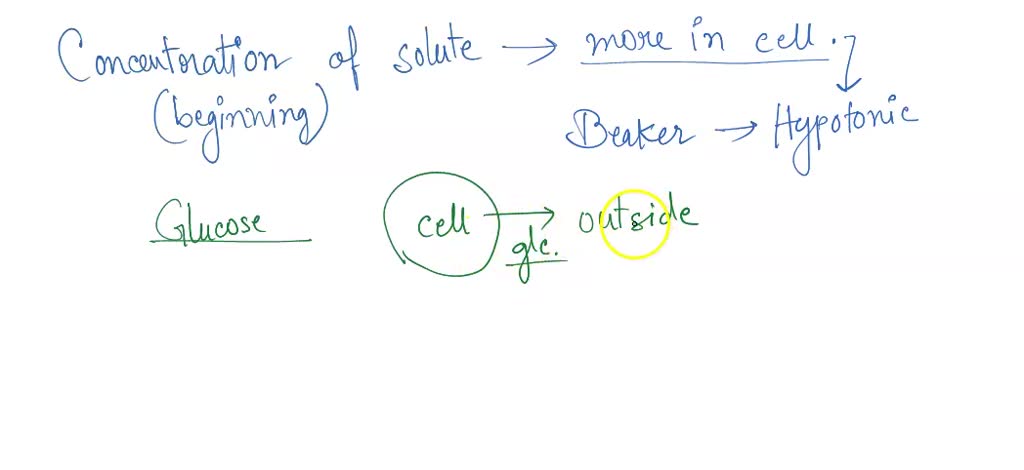 Concentration of solute → more in cell.
(beginning)
Beaker → Hypotonic
Glucose
cell → outside
glc.